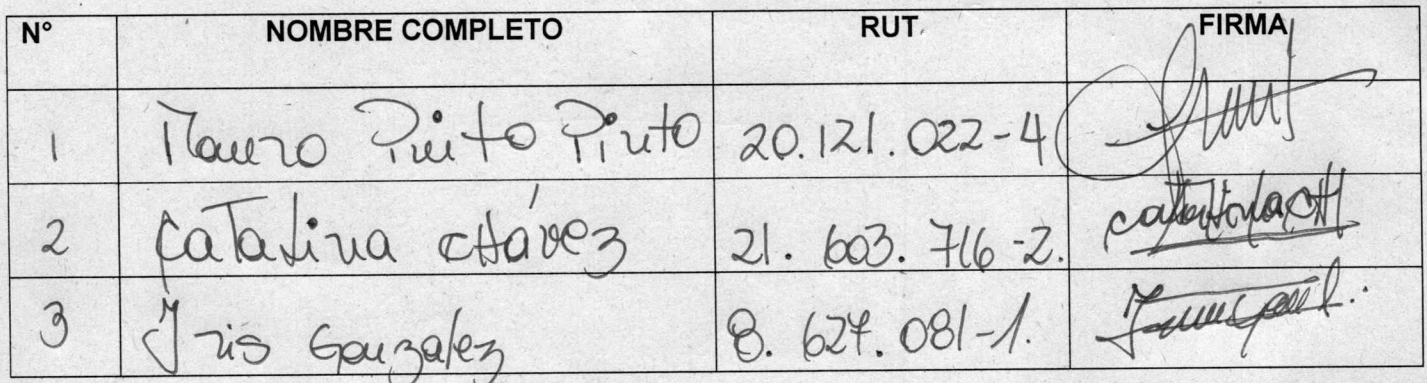 N° NOMBRE COMPLETO RUT. FIRMA
1 Mauro Pinto Pinto 20.121.022-4
2 Catalina Chávez 21.603.716-2. catalinaCH.
3 Iris Gonzalez 8.627.081-1.